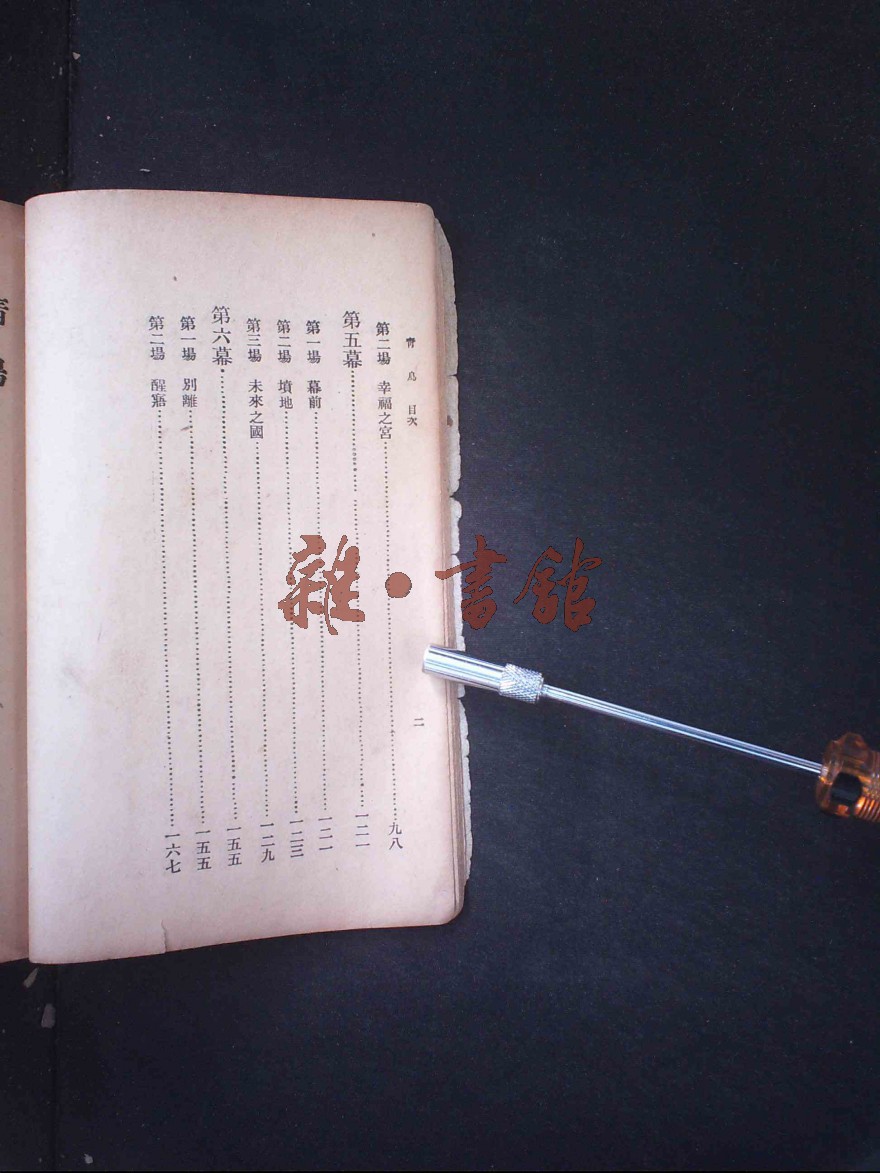 青鳥 目次
第二場 幸福之宮……九八
第五幕……一二一
第一場 幕前……一二一
第二場 墳地……一二三
第三場 未來之國……一二九
第六幕……一五五
第一場 別離……一五五
第二場 醒寤……一六七
二
雜·書館